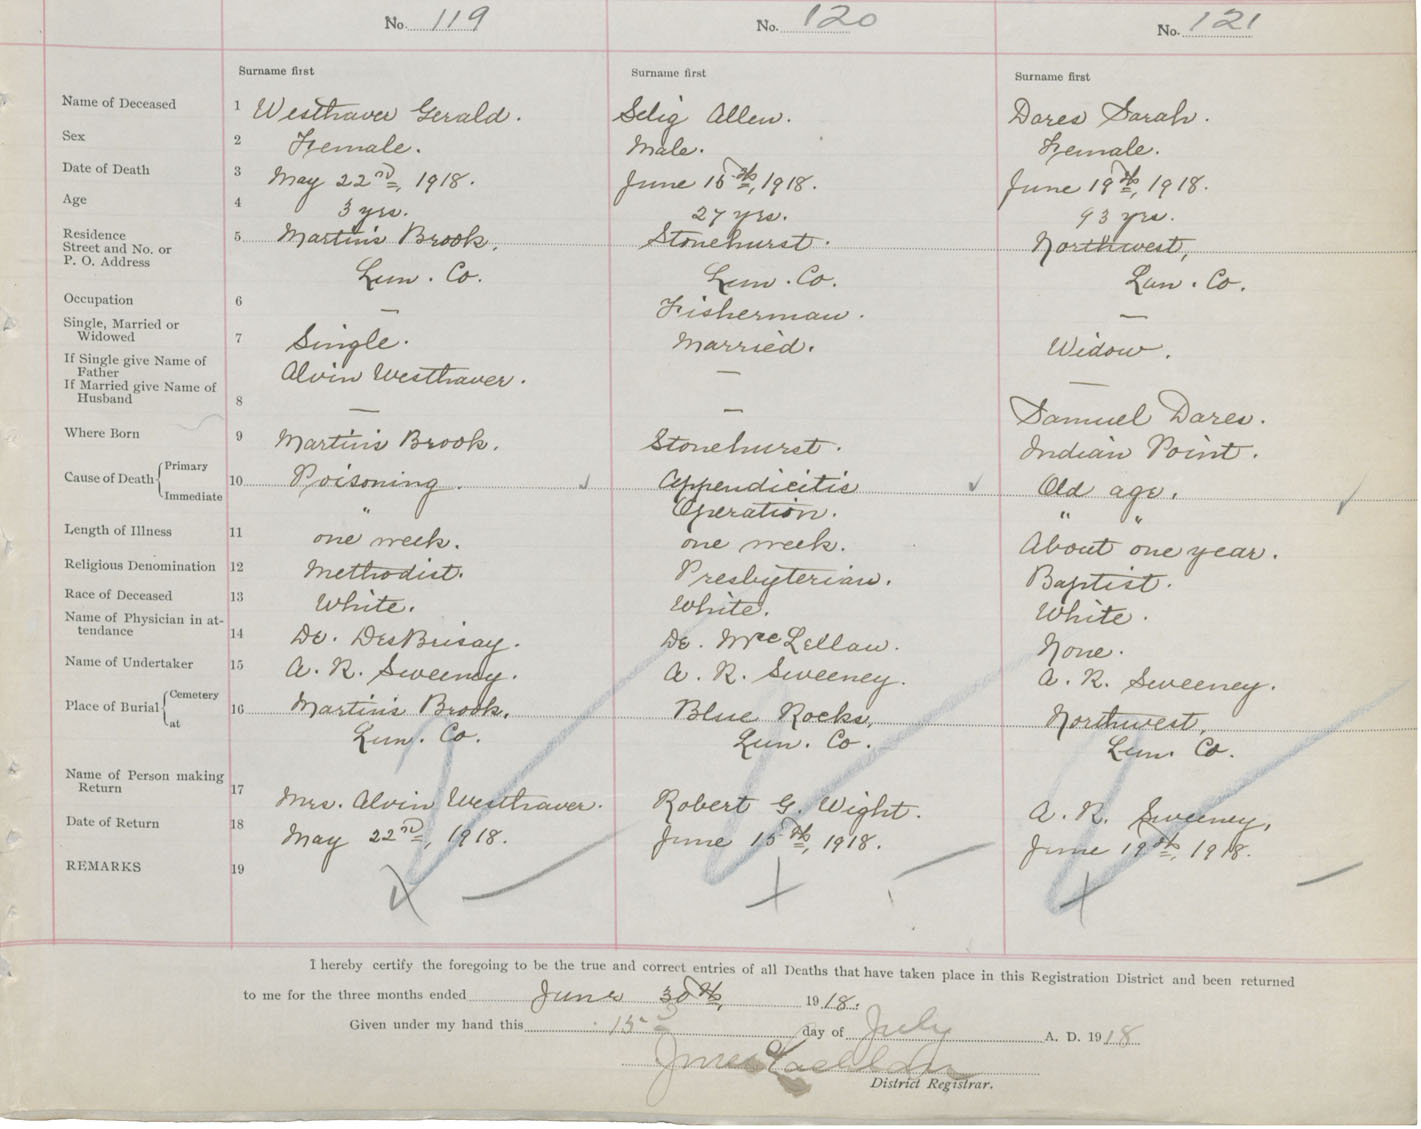 No. 119 No. 120 No. 121
Surname first Surname first Surname first
Name of Deceased 1 Westhaver Gerald. Selig Allen. Dares Sarah.
Sex 2 Female. Male. Female.
Date of Death 3 May 22nd, 1918. June 15th, 1918. June 19th, 1918.
Age 4 3 yrs. 27 yrs. 93 yrs.
Residence 5 Martins Brook, Stonehurst. Northwest,
Street and No. or
P. O. Address Lun. Co. Lun. Co. Lun. Co.
Occupation 6 — Fisherman. —
Single, Married or
Widowed 7 Single. Married. Widow.
If Single give Name of
Father Alvin Westhaver. — —
If Married give Name of
Husband 8 — — Samuel Dares.
Where Born 9 Martins Brook. Stonehurst. Indian Point.
Cause of Death { Primary 10 Poisoning. Appendicitis Old age.
Immediate " Operation. " "
Length of Illness 11 one week. one week. About one year.
Religious Denomination 12 Methodist. Presbyterian. Baptist.
Race of Deceased 13 White. White. White.
Name of Physician in at-
tendance 14 Dr. DesBrisay. Dr. McLellan. None.
Name of Undertaker 15 A. R. Sweeney. A. R. Sweeney. A. R. Sweeney.
Place of Burial { Cemetery 16 Martins Brook, Blue Rocks, Northwest,
at Lun. Co. Lun. Co. Lun. Co.
Name of Person making
Return 17 Mrs. Alvin Westhaver. Robert G. Wight. A. R. Sweeney,
Date of Return 18 May 22nd, 1918. June 15th, 1918. June 19th, 1918.
REMARKS 19
I hereby certify the foregoing to be the true and correct entries of all Deaths that have taken place in this Registration District and been returned
to me for the three months ended June 30th, 1918.
Given under my hand this 15 day of July A. D. 1918
District Registrar.